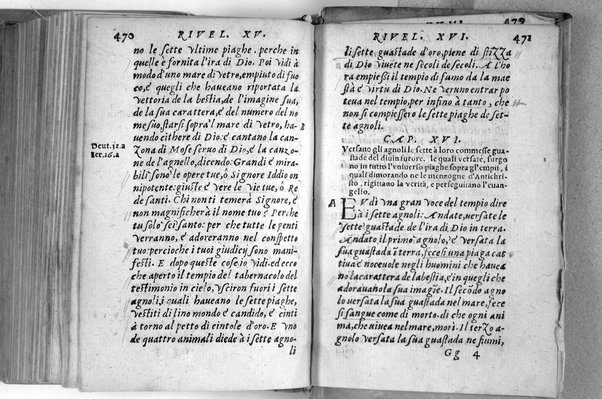 470 RIVEL. XV.
no le sette vltime piaghe. perche in
quelle è fornita l'ira di Dio. Poi vidi à
modo d'uno mare di vetro, empiuto di fuo
co, è quegli che haueano riportata la
vettoria de la bestia, de l'imagine sua,
de la sua carattera, è del numero del no
me suo, starsi sopra'l mare di vetro, ha
uendo cithere di Dio: è cantano la can-
Deut.32.a
zona di Mose seruo di Dio, è la canzo-
Ier.10.a
ne de l'agnello, dicendo: Grandi è mira-
bili sono le opere tue, ò Signore Iddio on
nipotente: giuste è vere le vie tue, ò Re
de santi. Chi non ti temerà Signore, è
non magnificherà il nome tuo? Perche
tu solo sei santo: per che tutte le genti
verranno, è adoreranno nel conspetto
tuo: percioche i tuoi giudicij sono mani-
festi. E dopo queste cose io vidi: ed ecco
che aperto il tempio del tabernacolo del
testimonio in cielo, vsciron fuori i sette
agnoli, i quali haueano le sette piaghe,
vestiti di lino mondo è candido, è cinti
à torno al petto di cintole d'oro. E vno
de quattro animali diede à i sette agno-
li
479
RIVEL. XVI. 471
li sette guastade d'oro, piene di stizza
di Dio viuete ne secoli de secoli. A l'ho
ra empiessi il tempio di fumo da la mae
stà è virtu di Dio. Ne veruno entrar po
teua nel tempio, per infino à tanto, che
non si compiessero le sette piaghe de set-
te agnoli.
CAP. XVI.
Versano gli agnoli le sette à loro commesse gua-
stade del diuin furore. le quali versate, surgo
no in tutto l'vniuerso piaghe sopra gl'empi, i
quali dimorando ne le menzogne d'Antichri-
sto, rigittano la verità, e perseguitano l'euan-
gelio.
A EVdi vna gran voce del tempio dire
à i sette agnoli: Andate, versate le
sette guastade de l'ira di Dio in terra.
Andato il primo agnolo, è versata la
sua guastada à terra, fecesi una piaga cat
tiua è noceuole negli huomini che hauea
no la carattera de la bestia, è in quegli che
adorauano la sua imagine. Il secōdo agno
lo versata la sua guastada nel mare, fece
si sangue come di morto. di che ogni ani
ma, che viuea nel mare, morì. Il terzo a-
gnolo versata la sua guastada ne fiumi,
Gg 4